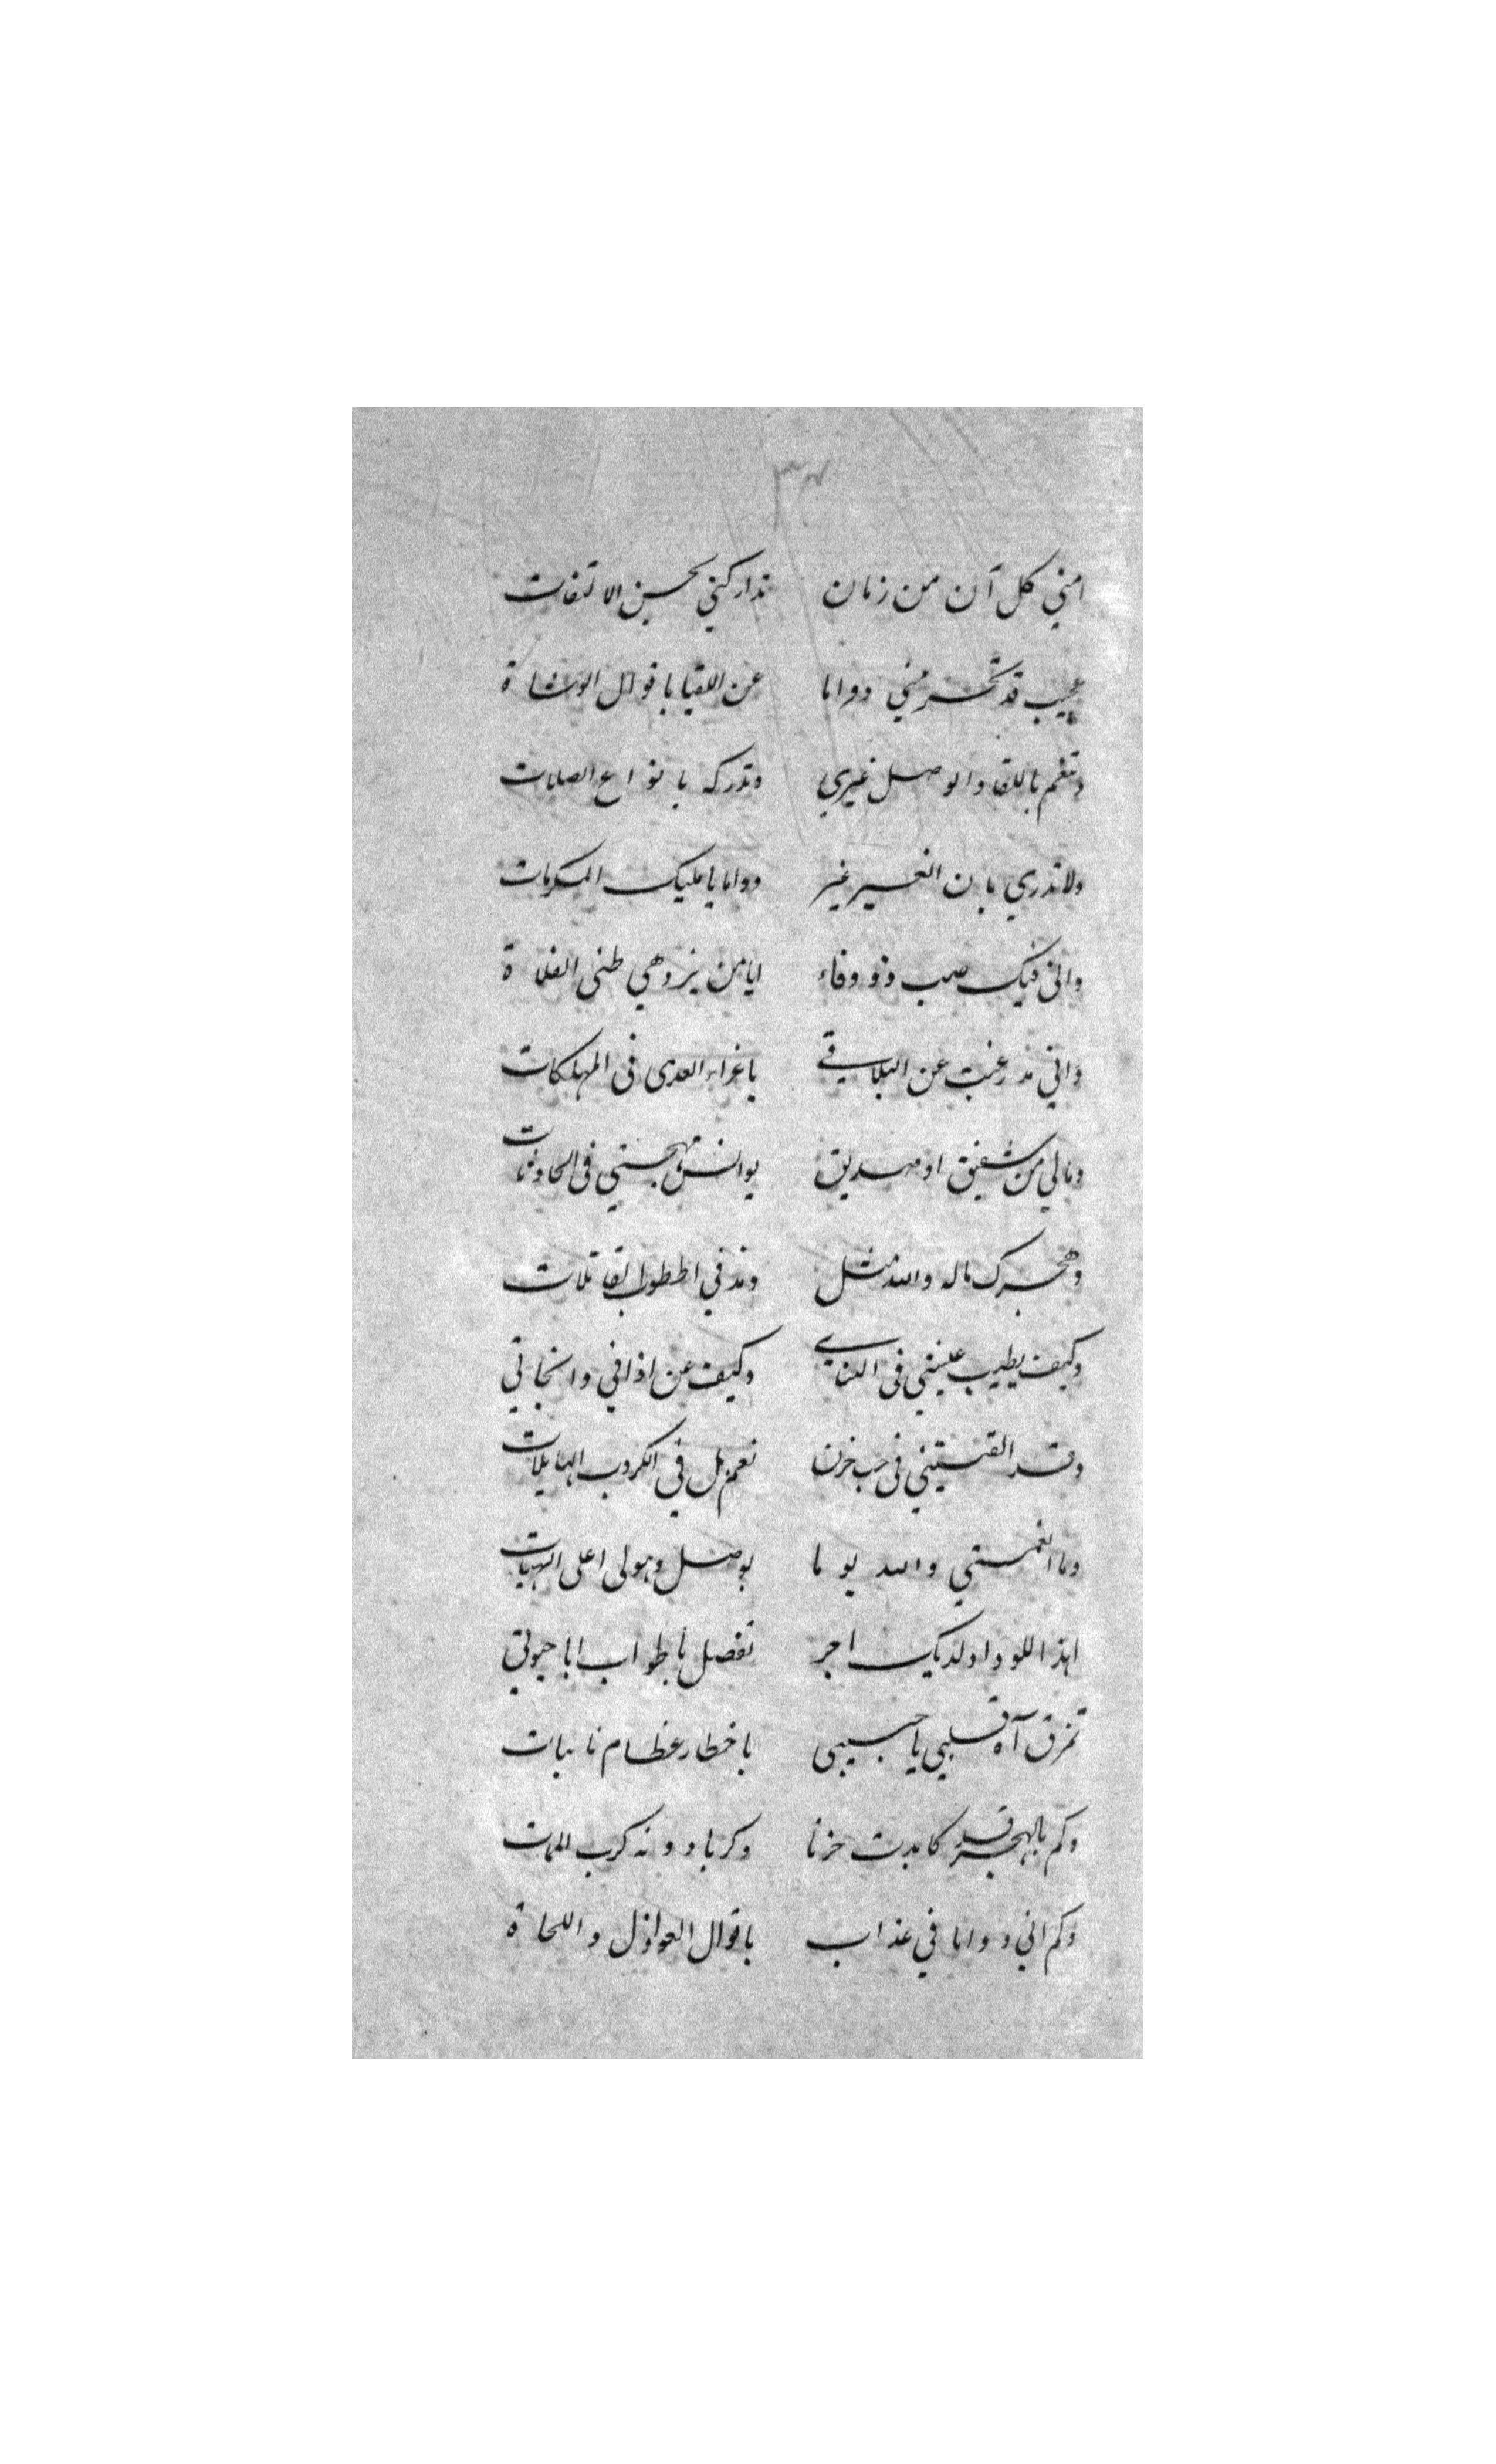 ٣٤
امني كل آن من زمان تداركني بحسن الالتفات
عجيب قد تحرمني دواما عن اللقيا باقوال الوشاة
وتنعم باللقا والوصل غيري وتدركه بانواع الصلات
ولا تدري بان الغير غير دواما يا مليك المكرمات
واني فيك صب ذو وفاء ايا من يزدهي ظبي الفلاة
واني مذ رغبت عن التلاقي باغراء العدى في المهلكات
ومالي من شفيق او صديق يوانس مهجتي في الحادثات
وهجرك ماله والله مثل
وكيف يطيب عيشي في التنائي وكيف عن اذا في وانجاتي
وقد القيتني في جب حزن نعم بل في الكروب الهايلات
وما انعمتني والله يوما بوصل وهو لي اعلى الهبات
اهذا للوداد لديك اجر تفضل بالجواب ايا حيوتي
تمزق آه قلبي يا حبيبي باخطار عظام نائبات
وكم بالهجر قد كابدت حزنا وكربا دونه كرب الممات
وكم اني دواما في عذاب باقوال العواذل واللحاة